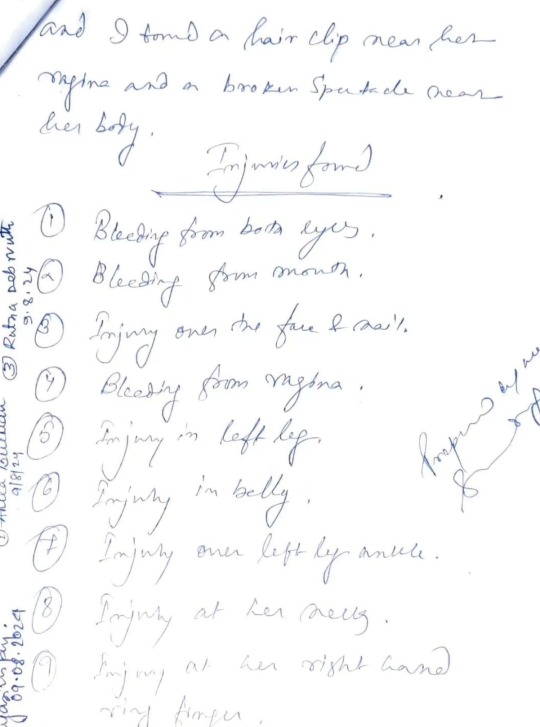 and I found a hair clip near her
vagina and a broken Spectacle near
her body.
Injuries found
① Bleeding from both eyes.
② Bleeding from mouth.
③ Injury over the face & nail.
④ Bleeding from vagina.
⑤ Injury in left leg.
⑥ Injury in belly.
⑦ Injury over left leg ankle.
⑧ Injury at her neck.
⑨ Injury at her right hand
ring finger.
Prepared by me
③ Ratna Debnath
9.8.24
9/8/24
09.08.2024